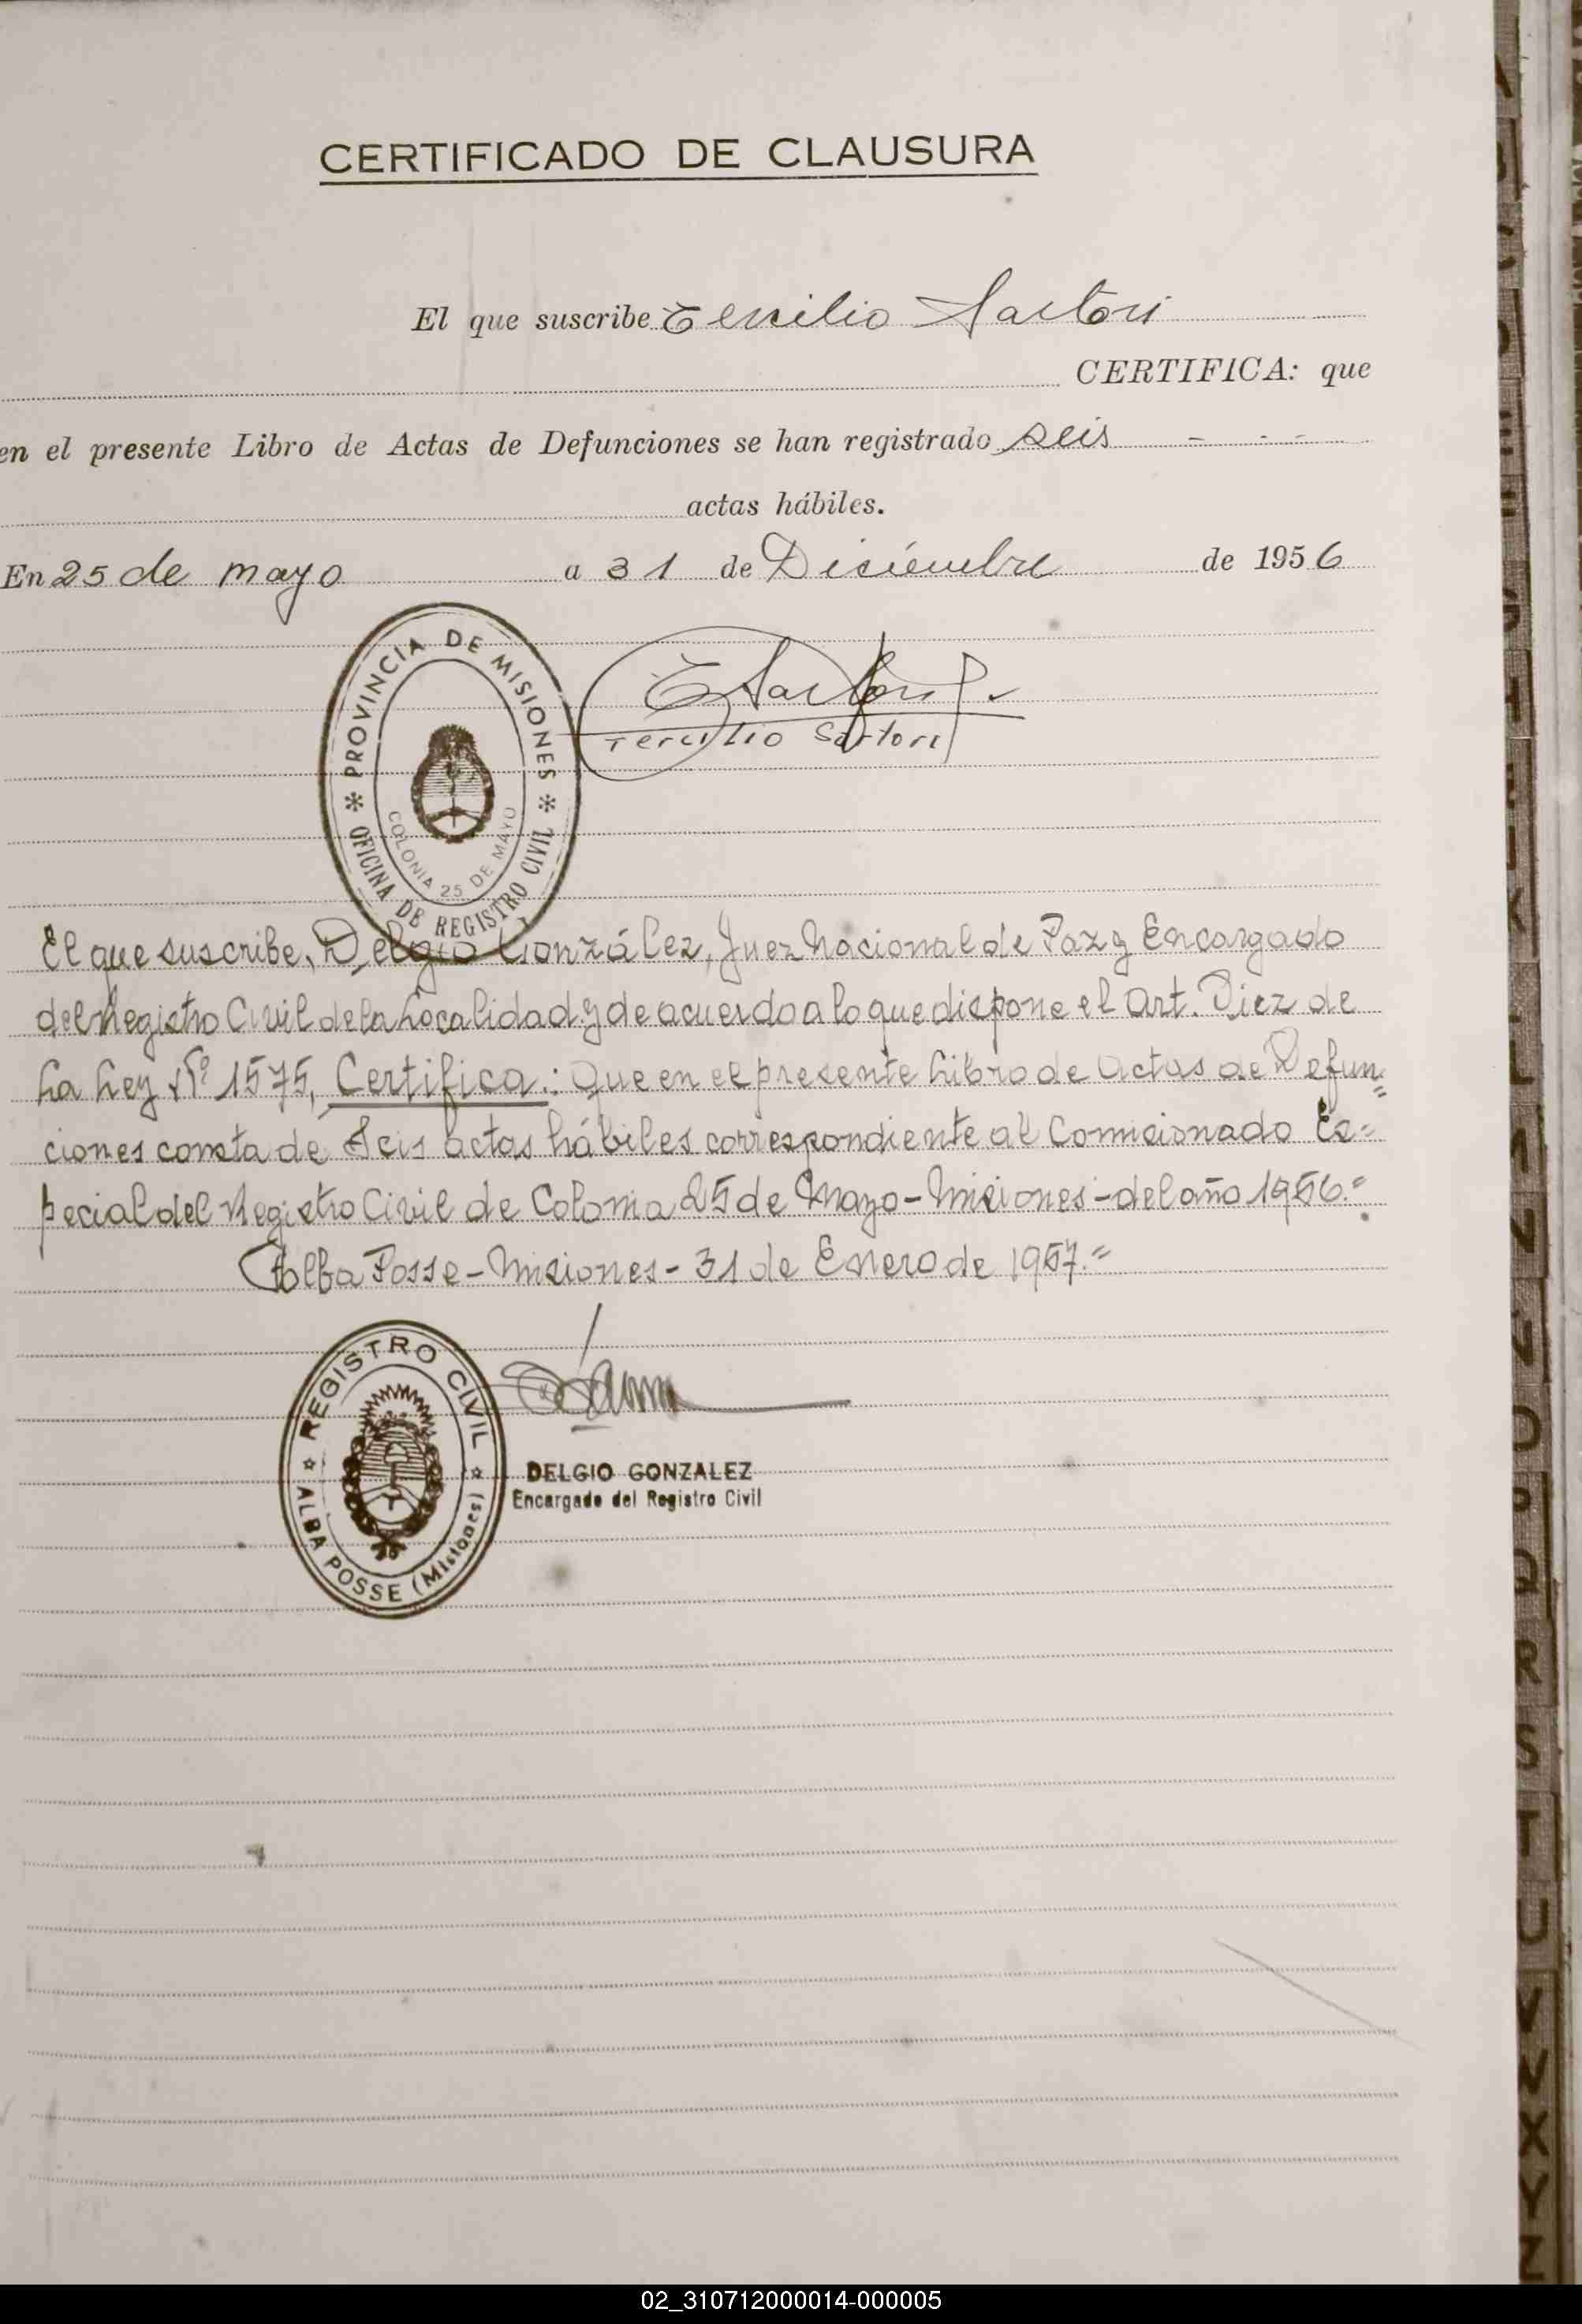 CERTIFICADO DE CLAUSURA
El que suscribe Sartori
CERTIFICA: que
en el presente Libro de Actas de Defunciones se han registrado seis - - -
actas hábiles.
En 25 de mayo a 31 de Diciembre de 1956
PROVINCIA DE MISIONES
COLONIA 25 DE MAYO
* OFICINA DE REGISTRO CIVIL *
Sartori
El que suscribe, Delgio González, Juez Nacional de Paz y Encargado
del Registro Civil de la Localidad y de acuerdo a lo que dispone el Art. Diez de
La Ley Nº 1575, Certifica.: Que en el presente Libro de Actas de Defun=
ciones consta de Seis actas hábiles correspondiente al Comisionado Es=
pecial del Registro Civil de Colonia 25 de Mayo-Misiones-del año 1956.=
Alba Posse-Misiones- 31 de Enero de 1957.=
REGISTRO CIVIL
ALBA POSSE (Misiones)
DELGIO GONZALEZ
Encargado del Registro Civil
R
S
T
U
V
X
Y
Z
02_310712000014-000005